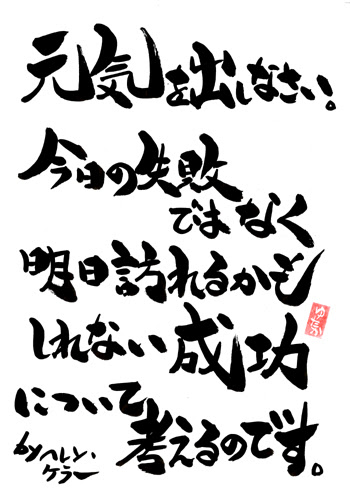 元気を出しなさい。
今日の失敗
ではなく
明日訪れるかも
しれない成功
について
考えるのです。
byヘレン・
ケラー
ゆたか